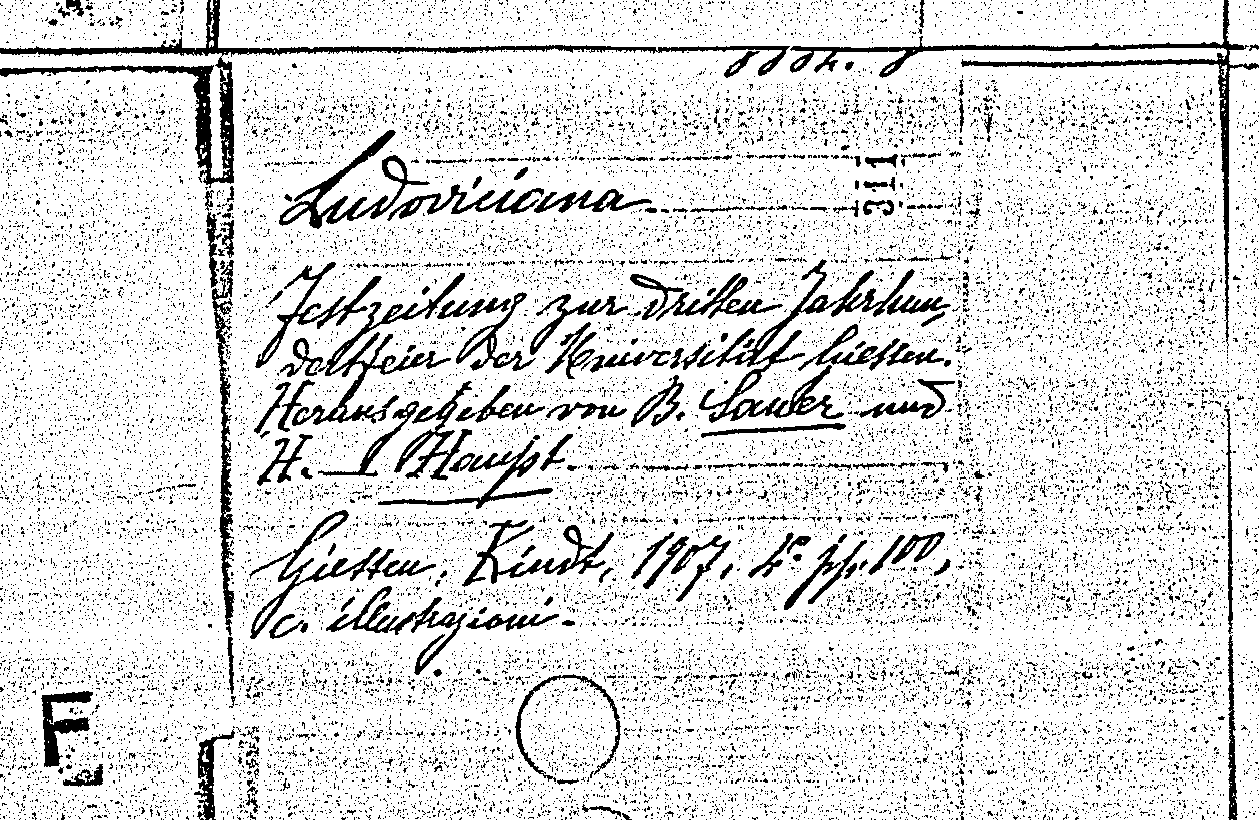 Ludoviciana
311
Festzeitung zur dritten Jahrhun,
dertfeier der Universität Giessen.
Herausgegeben von B. Sauer und
H. — Haupt.
Giessen, Kindt, 1907, 4° pp. 100,
c. illustrazioni.
F